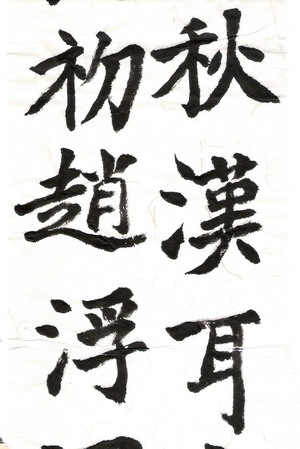 秋漢耳
初趙浮